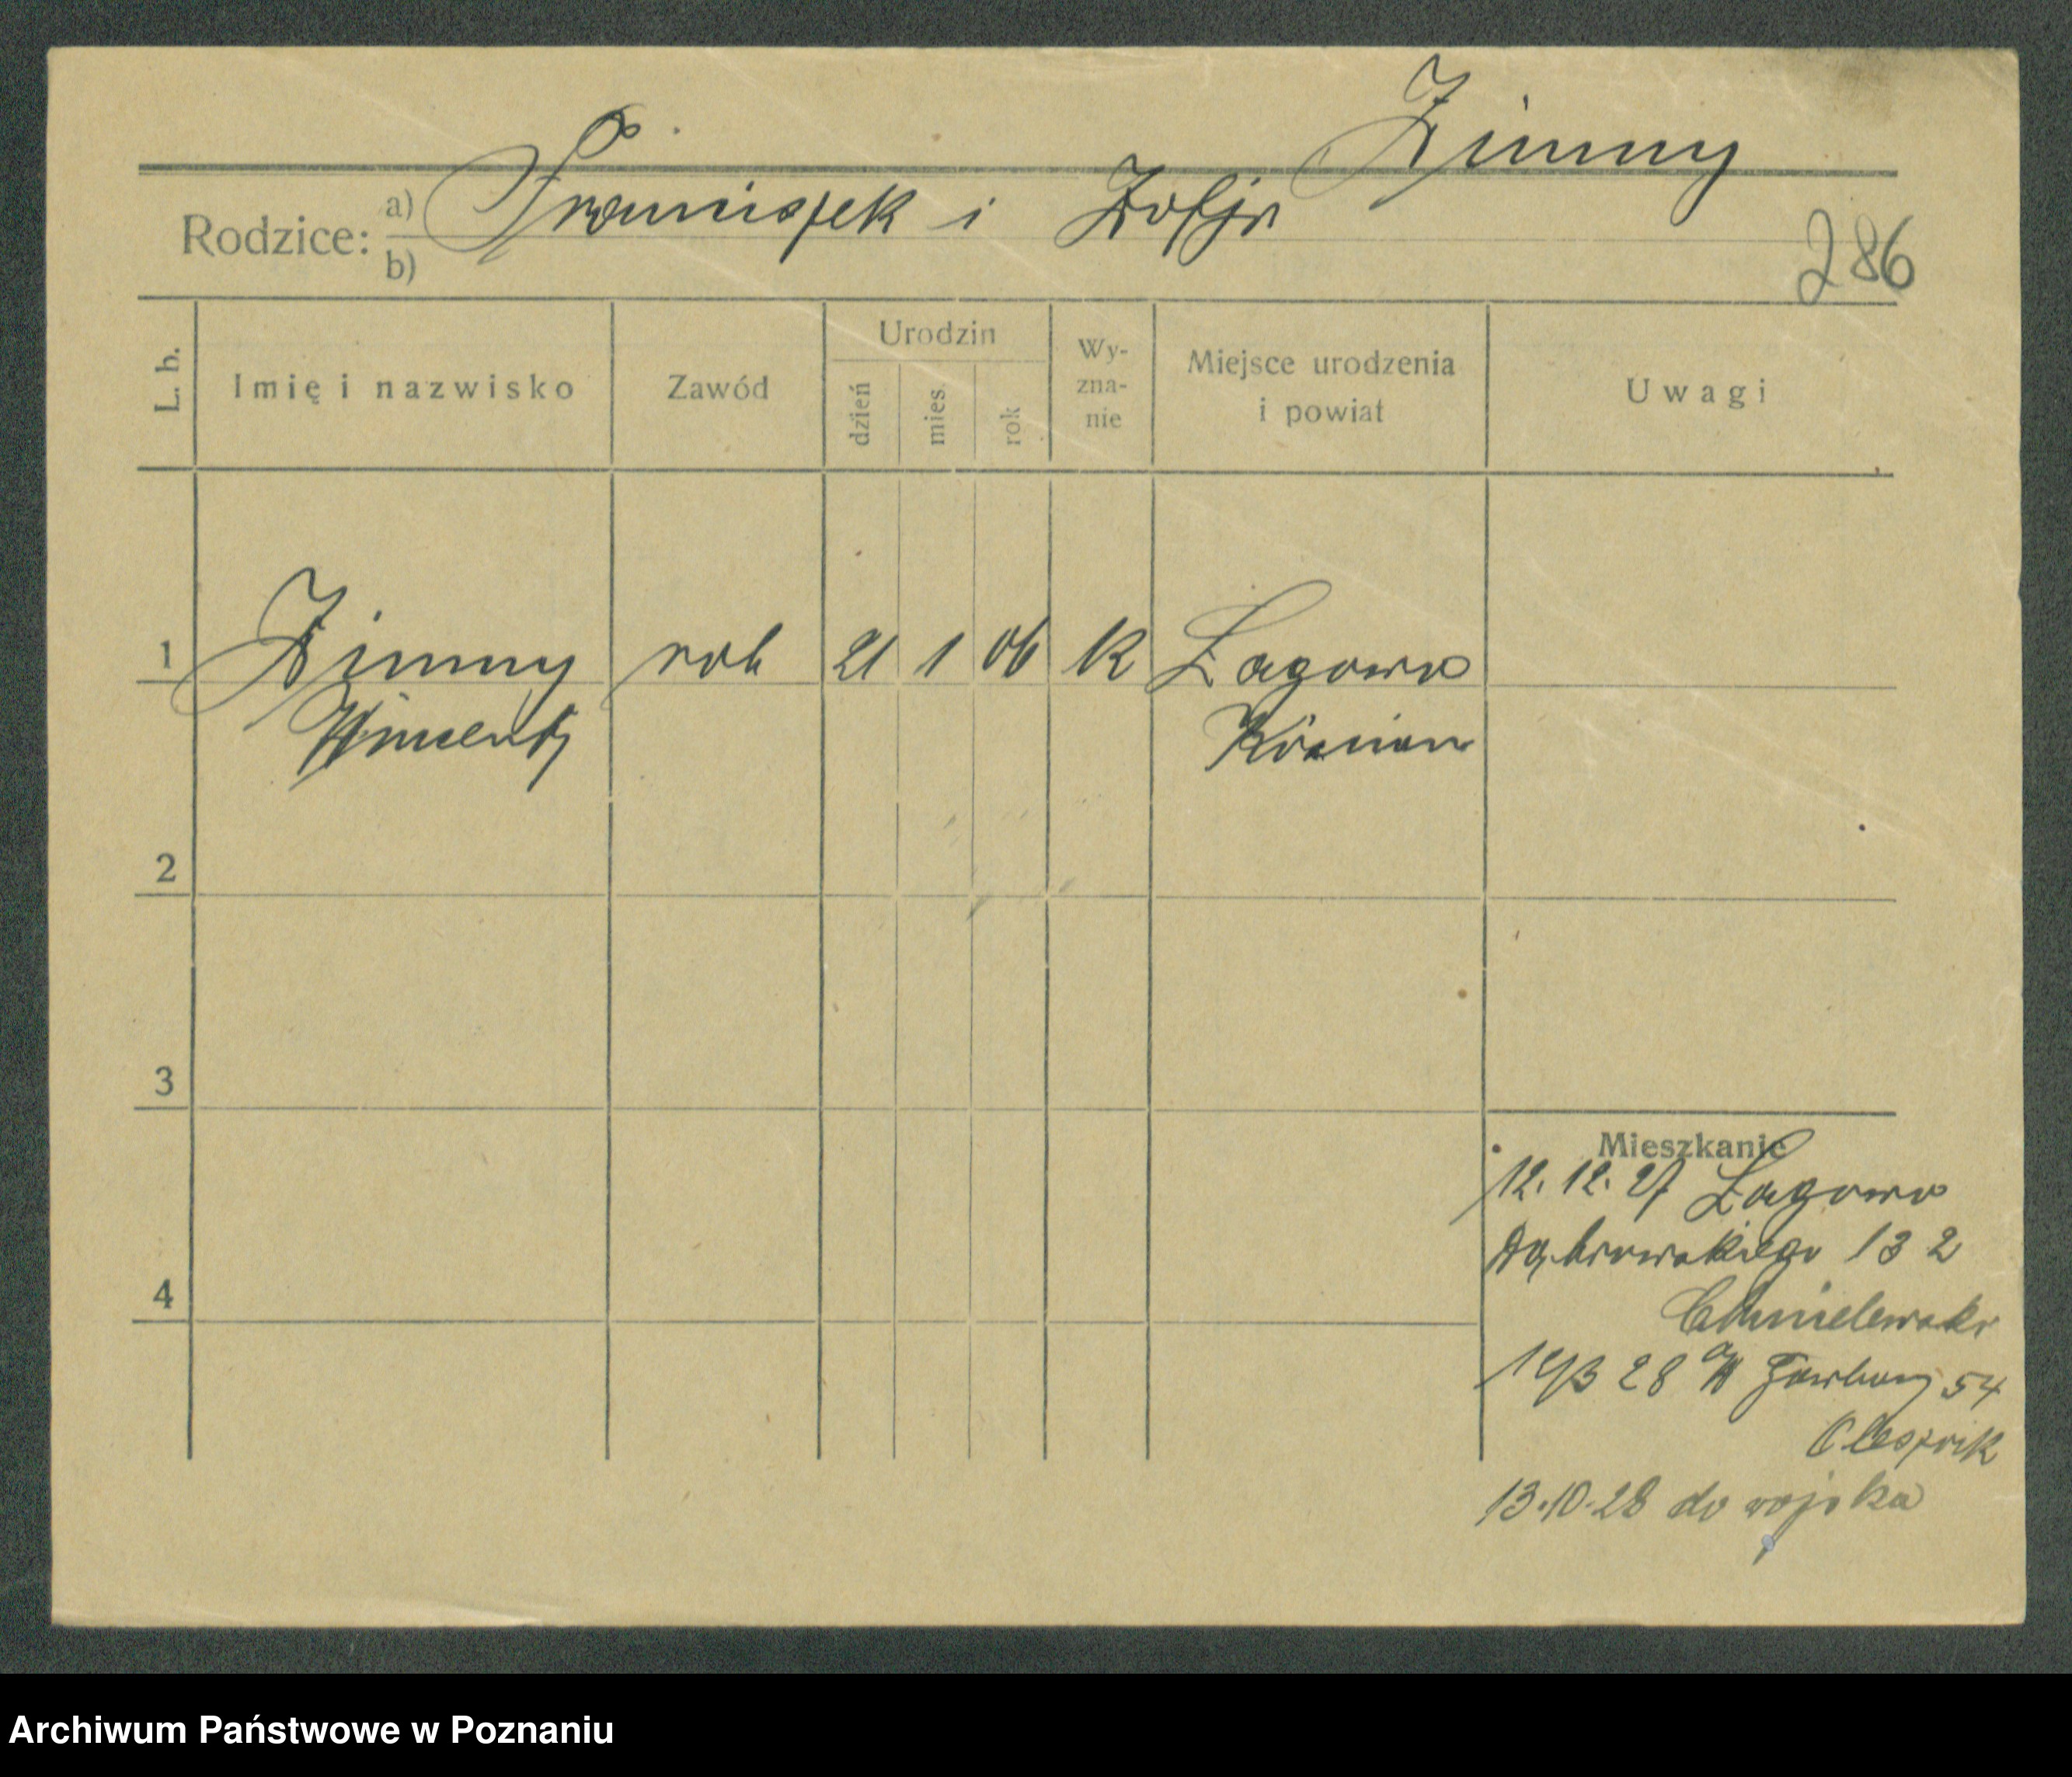 Zimny
Rodzice: a) Franciszek i Zofja
b)
286
L. b. Imię i nazwisko Zawód Urodzin dzień mies. rok Wy-zna-nie Miejsce urodzenia i powiat Uwagi
1 Zimny rob 21 1 06 K Łagowo
Wincenty Kościan
2
3
Mieszkanie
12. 12. 27 Łagowo
Dąbrowskiego 13 2
4
Chmielewski
28 W Garbary 54
13.10.28 do wojska
Archiwum Państwowe w Poznaniu